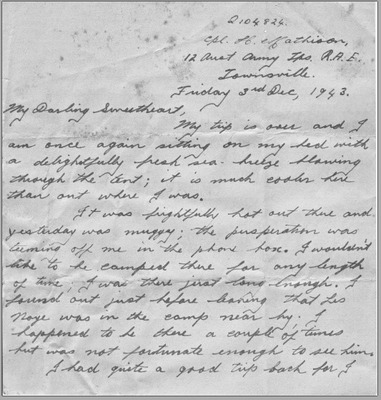 Q104824.
Cpl. H. Mathison,
12 Aust Army Tps. R.A.E.
Townsville.
Friday 3rd Dec, 1943.
My Darling Sweetheart,
My trip is over and I
am once again sitting on my bed with
a delightfully fresh sea-breeze blowing
through the tent; it is much cooler here
than out where I was.
It was frightfully hot out there and
yesterday was muggy; the perspiration was
teeming off me in the phone box. I wouldn't
like to be camped there for any length
of time, I was there just long enough. I
found out just before leaving that Les
Noye was in the camp near by. I
happened to be there a couple of times
but was not fortunate enough to see him.
I had quite a good trip back for I